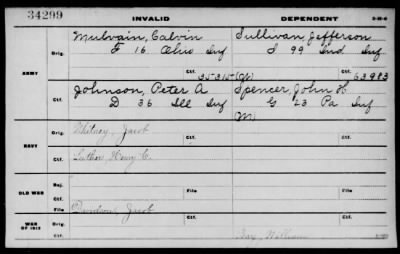 34299
INVALID DEPENDENT
Mulvain, Calvin Sullivan, Jefferson
ARMY Orig. F 16 Ohio Inf I 99 Ind Inf
Ctf. 63983
Johnson, Peter A Spencer, John H
Ctf. D 36 Ill Inf G 23 Pa Inf
(M)
NAVY Orig. Whitney, Jacob Ctf.
Luther, Henry C.
Ctf.
OLD WAR Rej. Ctf. File File
Davidson, Jacob
WAR OF 1812 Orig. Ctf. Ctf.
William